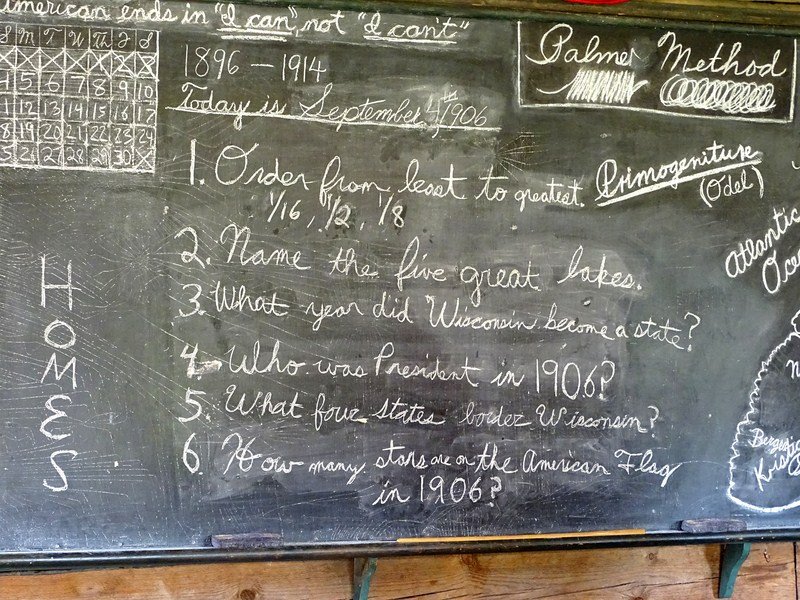 American ends in "I can", not "I can't"
S M T W Th F S
4 5 6 7 8 9 10
11 12 13 14 15 16 17
18 19 20 21 22 23 24
25 26 27 28 29 30
1896 – 1914
Today is September 4th, 1906
Palmer Method
1. Order from least to greatest.
1/16, 1/2, 1/8
Primogeniture
(Odel)
2. Name the five great lakes.
3. What year did Wisconsin become a state?
4. Who was President in 1906?
5. What four states border Wisconsin?
6. How many stars are on the American Flag
in 1906?
H
O
M
E
S
Atlantic
Oce